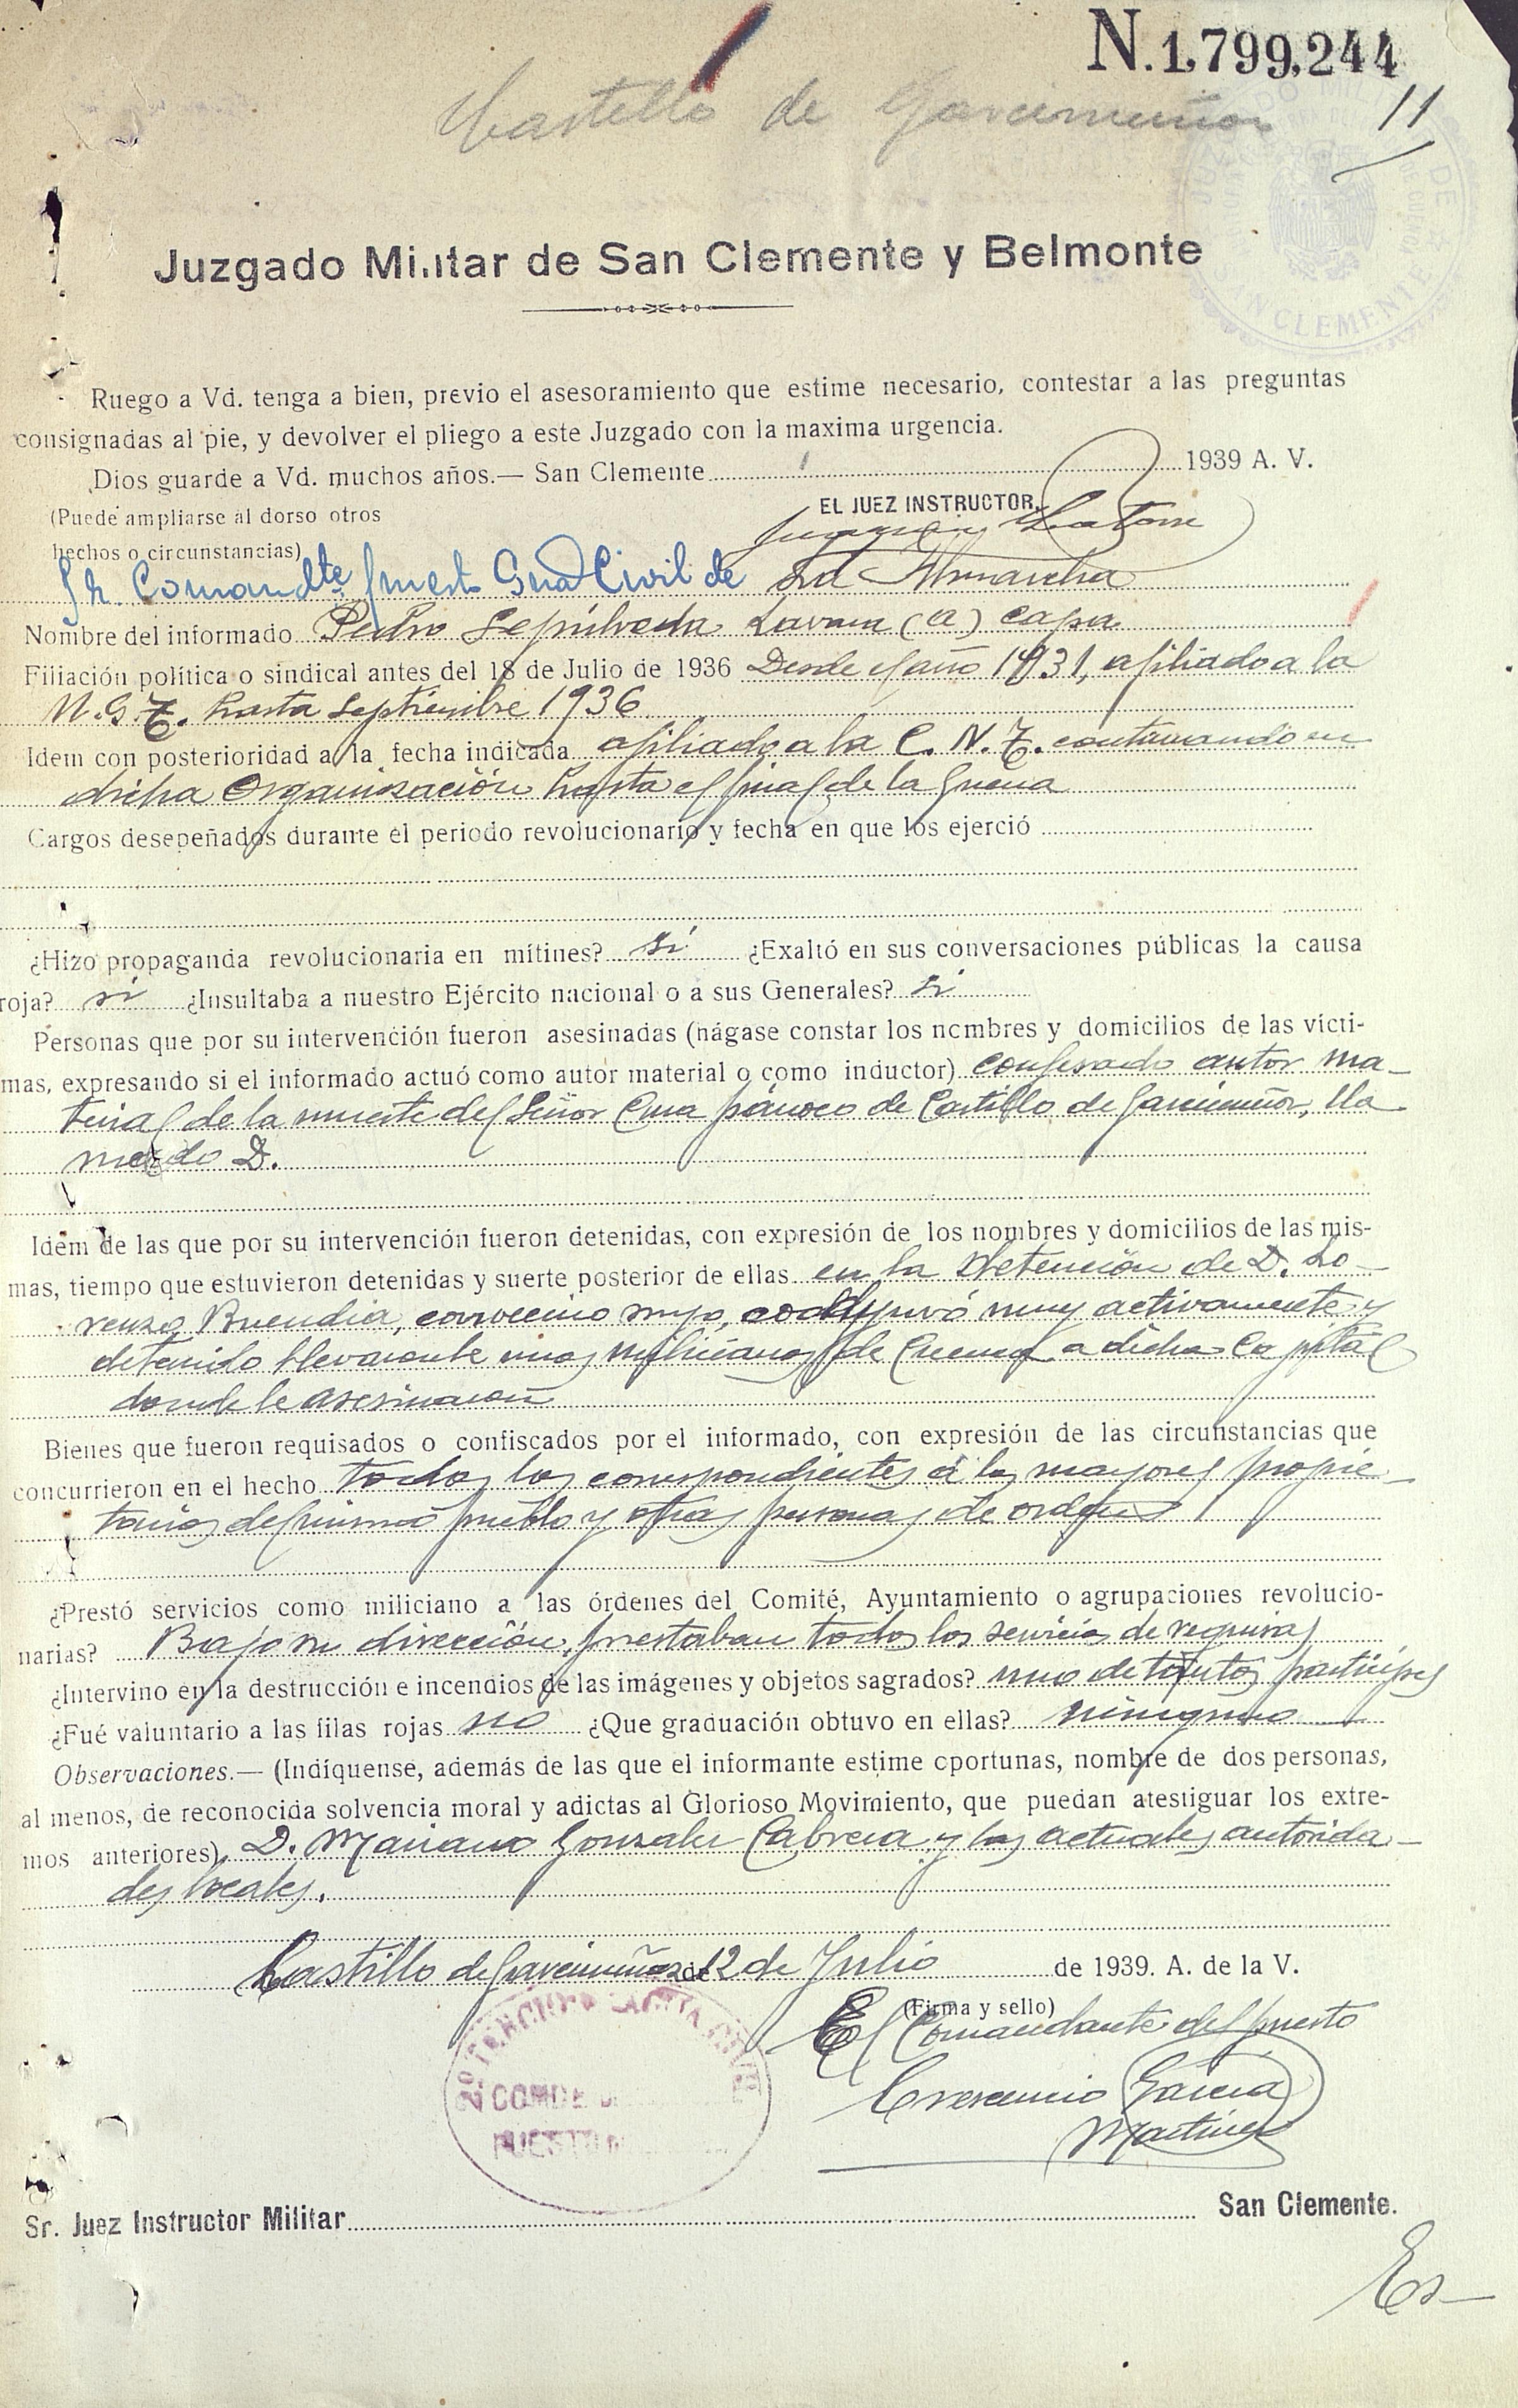 N.1.799.244
Castillo de Garcimuñoz 11
Juzgado Militar de San Clemente y Belmonte
Ruego a Vd. tenga a bien, previo el asesoramiento que estime necesario, contestar a las preguntas
consignadas al pie, y devolver el pliego a este Juzgado con la maxima urgencia.
Dios guarde a Vd. muchos años.— San Clemente 1939 A. V.
(Puede ampliarse al dorso otros
EL JUEZ INSTRUCTOR,
hechos o circunstancias)
Sr. Comandte puesto Gua Civil de La Almarcha
Nombre del informado Pedro Sepúlveda (a) Capa
Filiación política o sindical antes del 18 de Julio de 1936 Desde el año 1931, afiliado a la
U.G.T. hasta Septiembre 1936
Idem con posterioridad a la fecha indicada afiliado a la C. N. T. continuando en
dicha Organización hasta el final de la Guerra
Cargos desepeñados durante el periodo revolucionario y fecha en que los ejerció
¿Hizo propaganda revolucionaria en mítines? si ¿Exaltó en sus conversaciones públicas la causa
roja? si ¿Insultaba a nuestro Ejército nacional o a sus Generales? si
Personas que por su intervención fueron asesinadas (hágase constar los nombres y domicilios de las vícti-
mas, expresando si el informado actuó como autor material o como inductor) confesado autor ma-
terial de la muerte del Señor Cura párroco de Castillo de Garcimuñoz, lla
mado D.
Idem de las que por su intervención fueron detenidas, con expresión de los nombres y domicilios de las mis-
mas, tiempo que estuvieron detenidas y suerte posterior de ellas en la detención de D. Lo-
renzo Buendia, convecino suyo, coadyuvó muy activamente y
detenido llevaronle unos milicianos de Cuenca a dicha Capital
donde le asesinaron
Bienes que fueron requisados o confiscados por el informado, con expresión de las circunstancias que
concurrieron en el hecho todos los correspondientes a los mayores propie
tarios del mismo pueblo y otras personas de orden
¿Prestó servicios como miliciano a las órdenes del Comité, Ayuntamiento o agrupaciones revolucio-
narias? Bajo su dirección prestaban todos los servicios de requisas
¿Intervino en la destrucción e incendios de las imágenes y objetos sagrados? uno de tantos partícipes
¿Fué valuntario a las filas rojas no ¿Que graduación obtuvo en ellas? ninguno
Observaciones.— (Indíquense, además de las que el informante estime oportunas, nombre de dos personas,
al menos, de reconocida solvencia moral y adictas al Glorioso Movimiento, que puedan atestiguar los extre-
mos anteriores) D. Mariano Gonzalez Cabrera y las actuales autorida-
des locales.
Castillo de Garcimuñoz de 12 de Julio de 1939. A. de la V.
(Firma y sello)
El Comandante del puesto
Crescencio Garcia
Martinez
Sr. Juez Instructor Militar San Clemente.